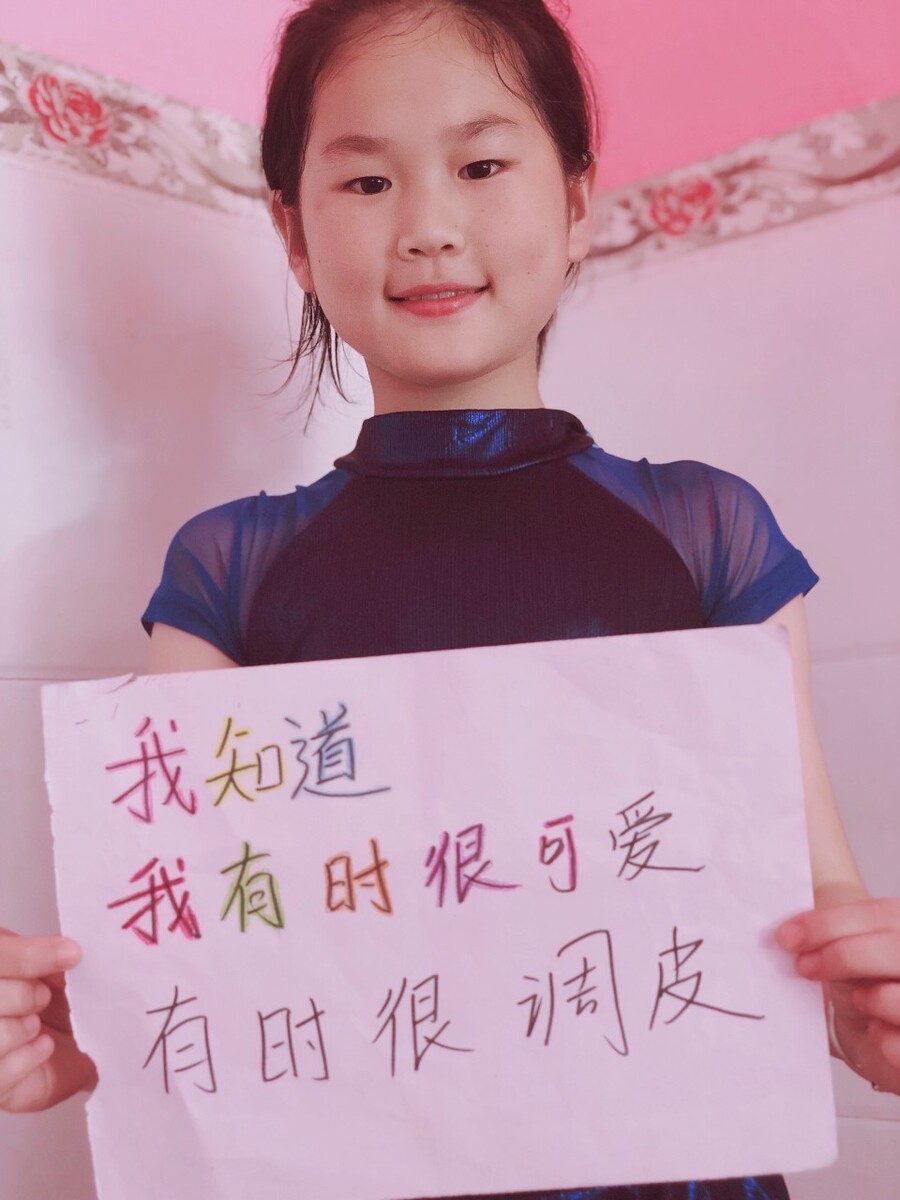 我知道
我有时很可爱
有时很调皮